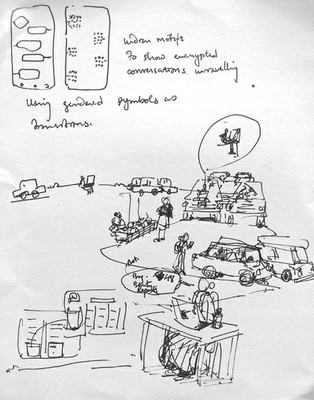 Indian motifs
To show encrypted
conversations unravelling.
Using gendered symbols as
transitions.